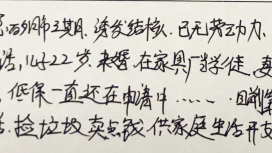 矽肺三期.诱发结核.已无劳动力.
儿子22岁.未婚.在家具厂学徒.妻
.低保一直还在申请中......目前
捡垃圾卖点钱供家庭生活开支